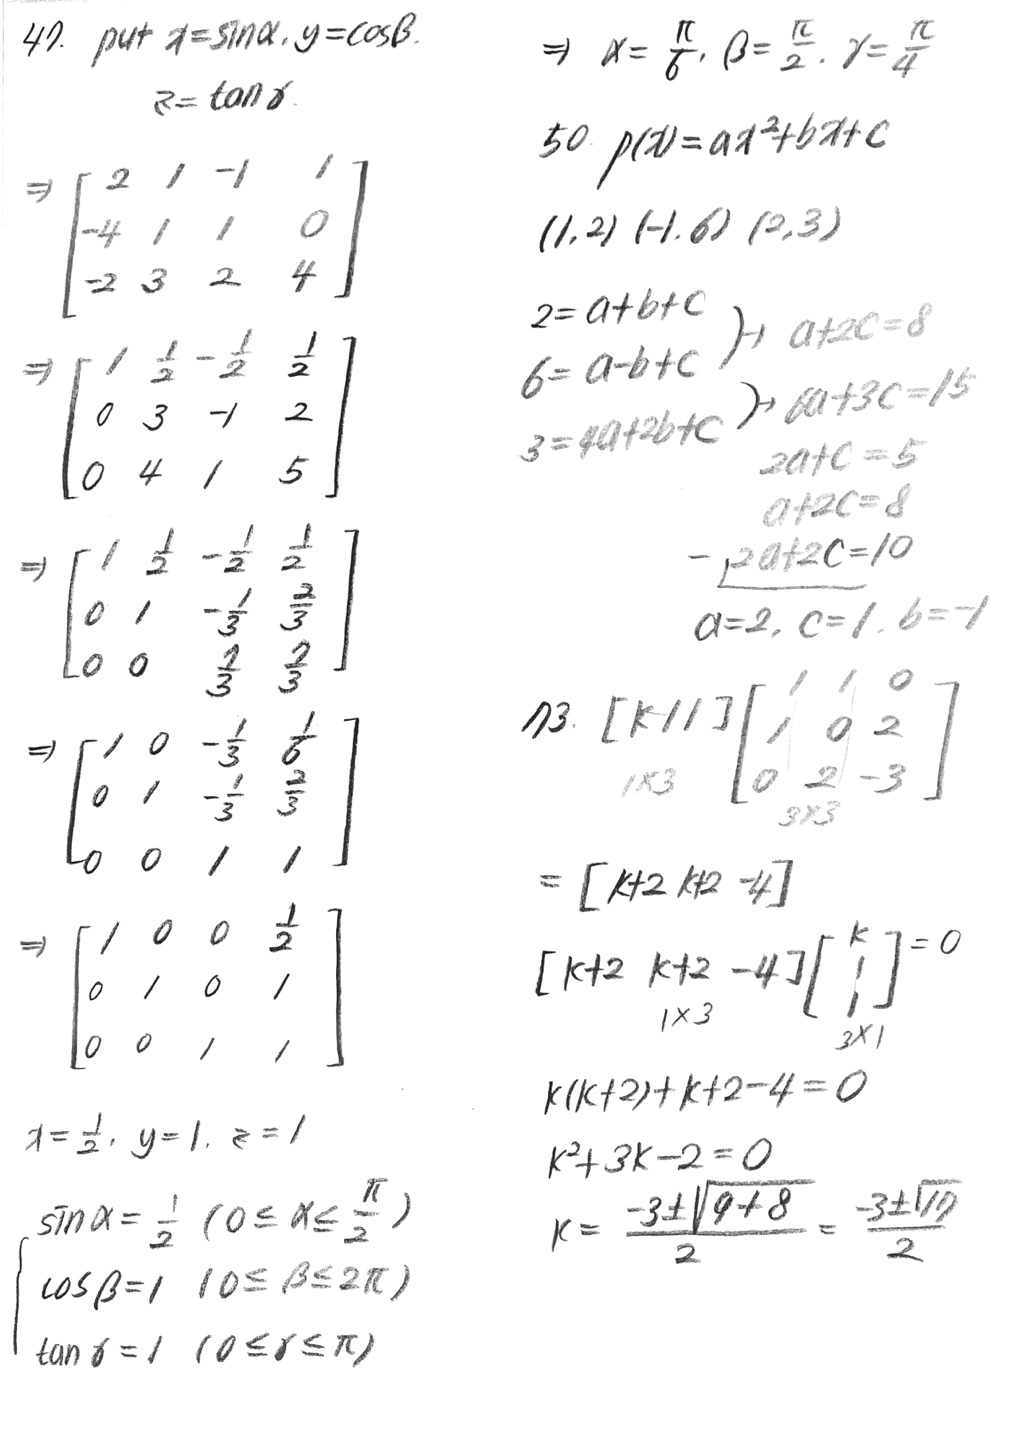 49. put x=sinα, y=cosβ.
z=tanγ.
⇒ [ 2 1 -1 1
-4 1 1 0
-2 3 2 4 ]
⇒ [ 1 1/2 -1/2 1/2
0 3 -1 2
0 4 1 5 ]
⇒ [ 1 1/2 -1/2 1/2
0 1 -1/3 2/3
0 0 7/3 7/3 ]
⇒ [ 1 0 -1/3 1/6
0 1 -1/3 2/3
0 0 1 1 ]
⇒ [ 1 0 0 1/2
0 1 0 1
0 0 1 1 ]
x=1/2, y=1, z=1
sinα=1/2 (0≤α≤π/2)
cosβ=1 (0≤β≤2π)
tanγ=1 (0≤γ≤π)
⇒ α=π/6, β=π/2, γ=π/4
50. p(x)=ax²+bx+c
(1,2) (-1,6) (2,3)
2=a+b+c
6=a-b+c
3=4a+2b+c
→ a+2c=8
→ 6a+3c=15
2a+c=5
a+2c=8
- 2a+2c=10
a=2, c=1, b=-1
73. [k 1 1] [ 1 1 0
1 0 2
0 2 -3 ]
1×3 3×3
= [k+2 k+2 -4]
[k+2 k+2 -4] [ k
1
1 ] =0
1×3 3×1
k(k+2)+k+2-4=0
k²+3k-2=0
k= (-3±√(9+8))/2 = (-3±√17)/2